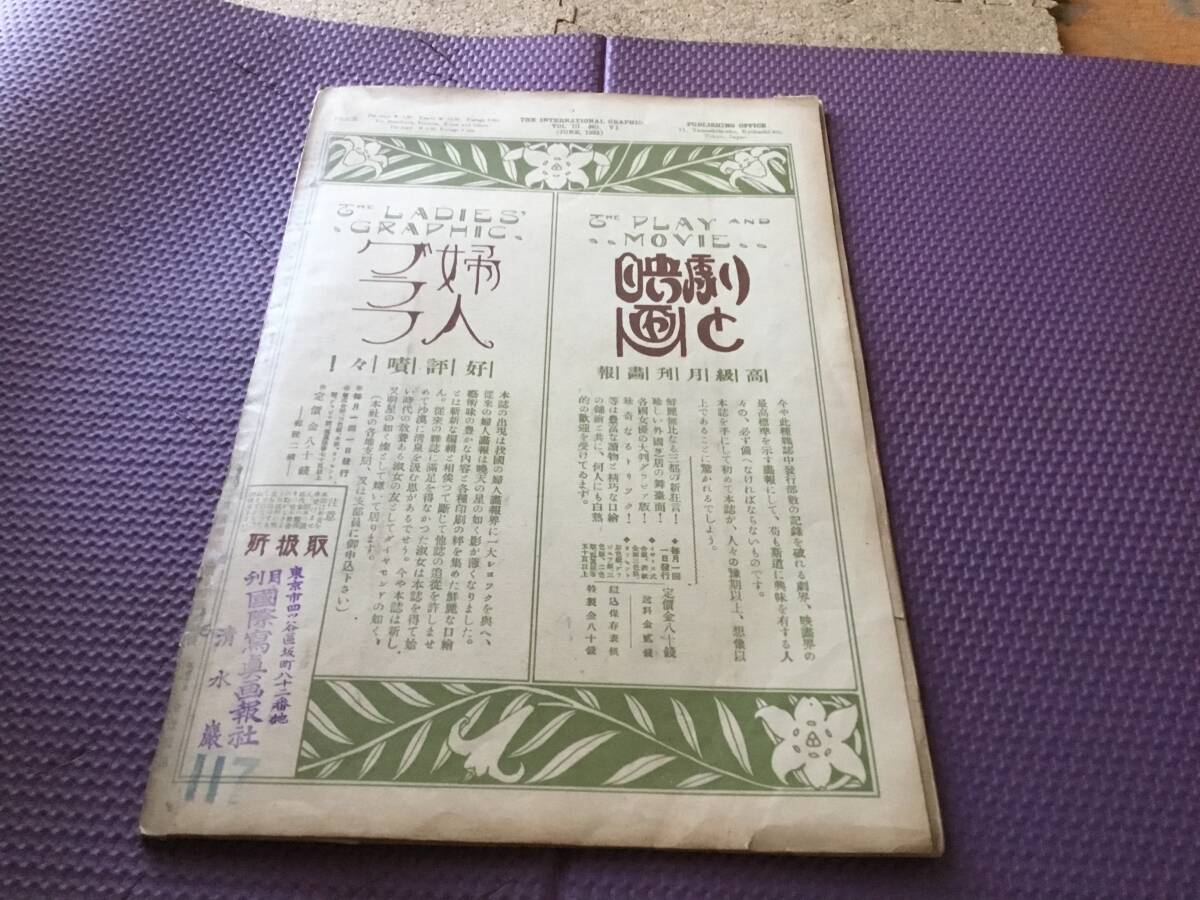 THE INTERNATIONAL GRAPHIC
VOL. III. NO. VI
PUBLISHING OFFICE
Tokyo, Japan.
THE PLAY AND
MOVIE
劇と
映画
高級月刊畫報
今や此種雜誌中發行部數の記錄を破れる劇界、映畫界の
最高標準を示す畫報にして、苟も斯道に興味を有する人
々の、必ず備へなければならないものです。
本誌を手にして初めて本誌が、人々の豫期以上、想像以
上であることに驚かれるでしよう。
鮮麗無比なる三都の新狂言！
珍しい外國芝居の舞臺面！
各國女優の大判グラビア版！
珍奇なるトリツク！
等は豊富な讀物と精巧な口繪
の錦繪と共に、何人にも白熱
的の歡迎を受けてゐます。
毎月一回
一日發行
定價金八十錢
送料金貳錢
特製金八十錢
THE LADIES'
GRAPHIC
婦人
グラフ
好評嘖々！
本誌の出現は我國の婦人畫報界に一大シヨツクを與へ、
従來の婦人畫報は曉天の星の如く影が薄くなりました。
藝術味の豊かな內容と各種印刷の粹を集めた鮮麗な口繪
とは斬新な編輯と相俟つて斷じて他誌の追從を許しませ
ん。從來の雜誌に滿足を得なかつた淑女は本誌を得て始
めて沙漠に淸泉を汲む思があるでせう。今や本誌は新し
い時代の敎養ある淑女の友としてダイヤモンドの如く、
又明星の如く燦として輝いて居ります。
（本社の各地支局、又は支部員に御申込下さい）
毎月一回一日發行
定價金八十錢
郵稅二錢
注意
取扱所
東京市四谷區坂町八十二番地
月刊國際寫眞画報社
淸水巖
117